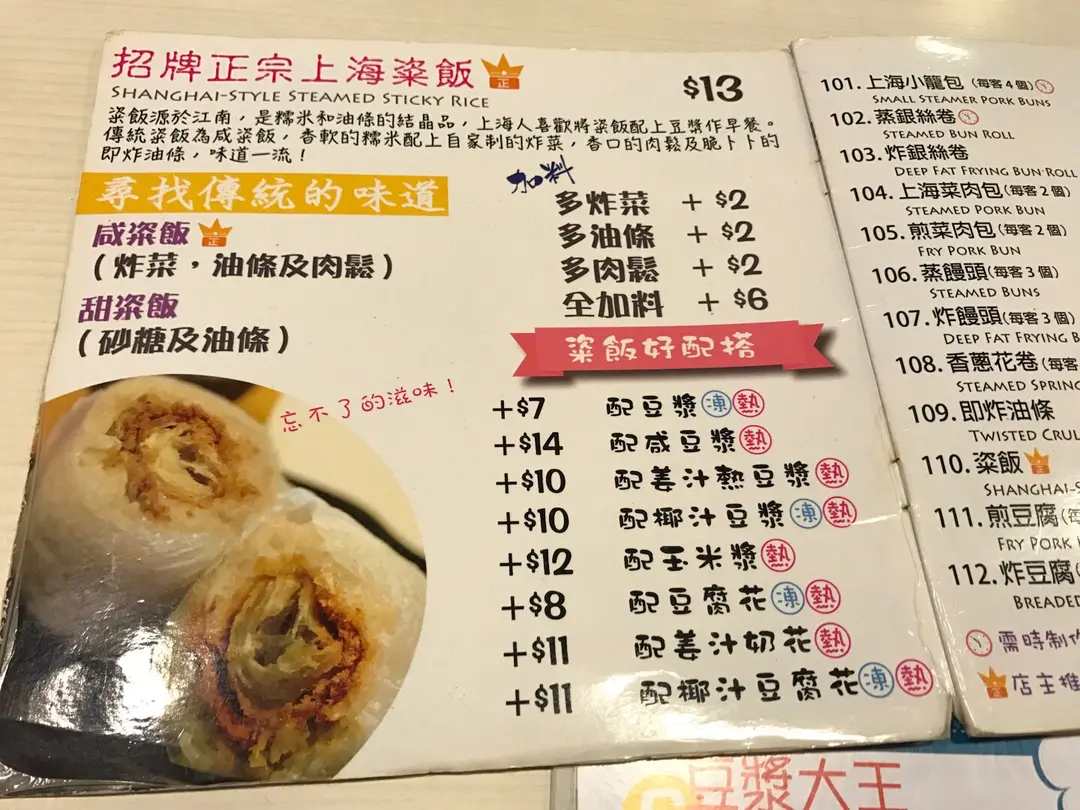 招牌正宗上海粢飯 正
$13
SHANGHAI-STYLE STEAMED STICKY RICE
粢飯源於江南，是糯米和油條的結晶品，上海人喜歡將粢飯配上豆漿作早餐。
傳統粢飯為咸粢飯，香軟的糯米配上自家制的炸菜，香口的肉鬆及脆卜卜的
即炸油條，味道一流！
尋找傳統的味道
咸粢飯 正
(炸菜，油條及肉鬆)
甜粢飯
(砂糖及油條)
忘不了的滋味！
加料
多炸菜 + $2
多油條 + $2
多肉鬆 + $2
全加料 + $6
粢飯好配搭
+$7 配豆漿 凍 熱
+$14 配咸豆漿 熱
+$10 配姜汁熱豆漿 熱
+$10 配椰汁豆漿 凍 熱
+$12 配玉米漿 熱
+$8 配豆腐花 凍 熱
+$11 配姜汁奶花 熱
+$11 配椰汁豆腐花 凍 熱
101. 上海小龍包 (每客4個)
SMALL STEAMER PORK BUNS
102. 蒸銀絲卷
STEAMED BUN ROLL
103. 炸銀絲卷
DEEP FAT FRYING BUN-ROLL
104. 上海菜肉包 (每客2個)
STEAMED PORK BUN
105. 煎菜肉包 (每客2個)
FRY PORK BUN
106. 蒸饅頭 (每客3個)
STEAMED BUNS
107. 炸饅頭 (每客3個)
DEEP FAT FRYING B
108. 香蔥花卷 (每客
STEAMED SPRING
109. 即炸油條
TWISTED CRUL
110. 粢飯 正
SHANGHAI-S
111. 煎豆腐 (每
FRY PORK
112. 炸豆腐 (
BREADED
需時制作
正 店主推
豆漿大王